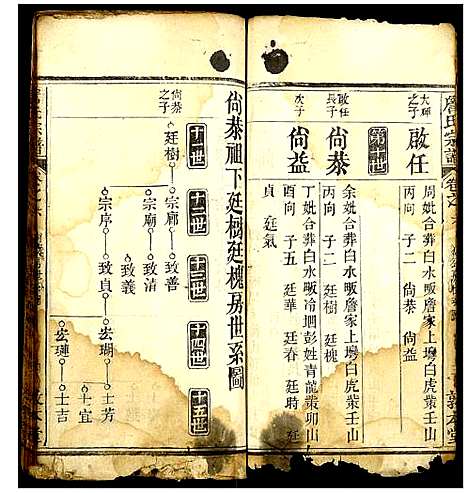 詹氏宗譜
卷之六
敦本堂
大暉之子
啟任
周妣合葬白水畈詹家上塝白虎業壬山
丙向 子二 尙恭 尙益
第十世
啟任長子
尙恭
余妣合葬白水畈詹家上塝白虎業壬山
丙向 子二 廷樹 廷槐
次子
尙益
丁妣合葬白水畈冷𡇼彭姓青龍業卯山
子五 廷華 廷春 廷時 廷
貞 廷氣
尙恭祖下廷樹廷槐房世系圖
十一世
十二世
十三世
十四世
十五世
尙恭之子
廷樹
宗廟
致善
宗廟
致清
致義
宗序
致貞
宏瑚
士芳
士宜
宏璉
士吉